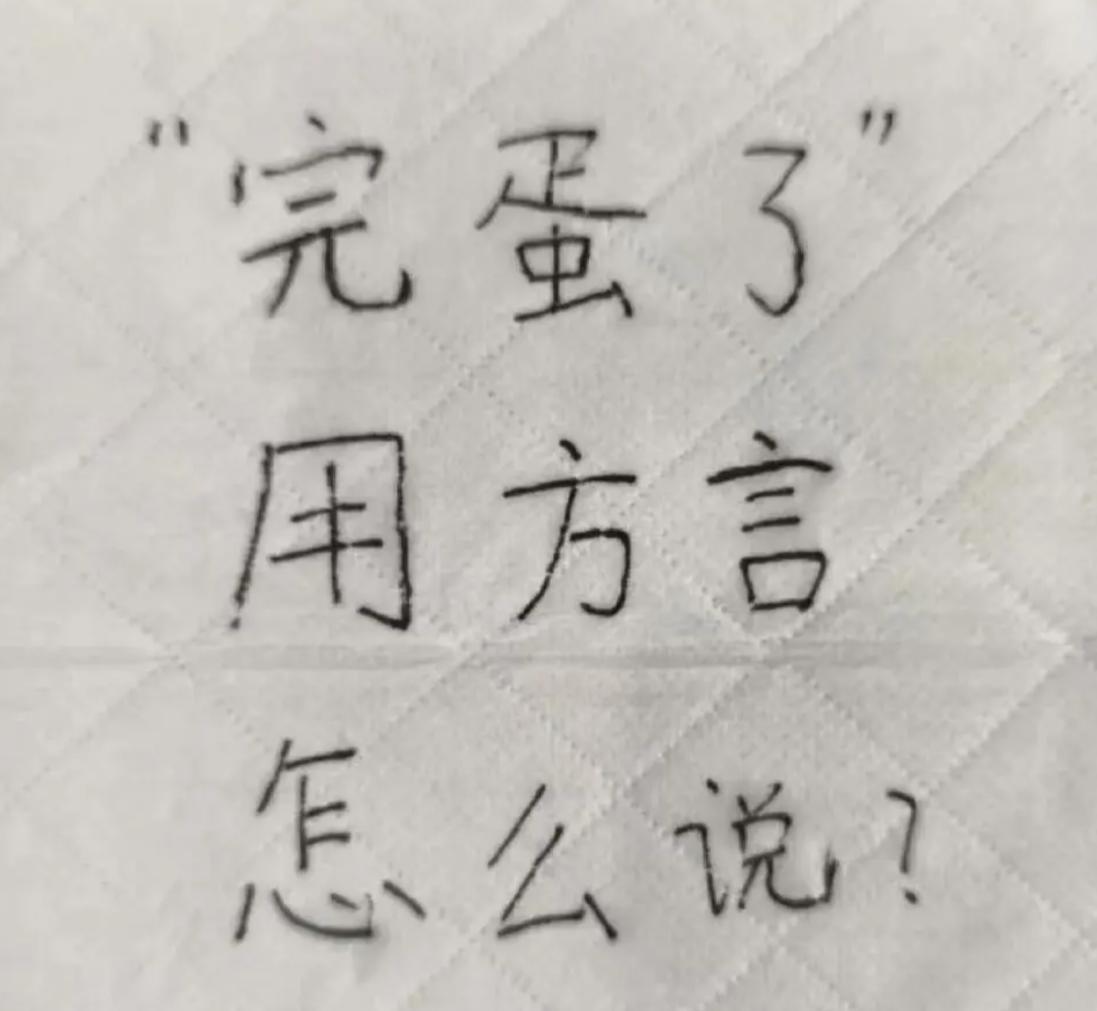 "完蛋了"
用方言
怎么说?